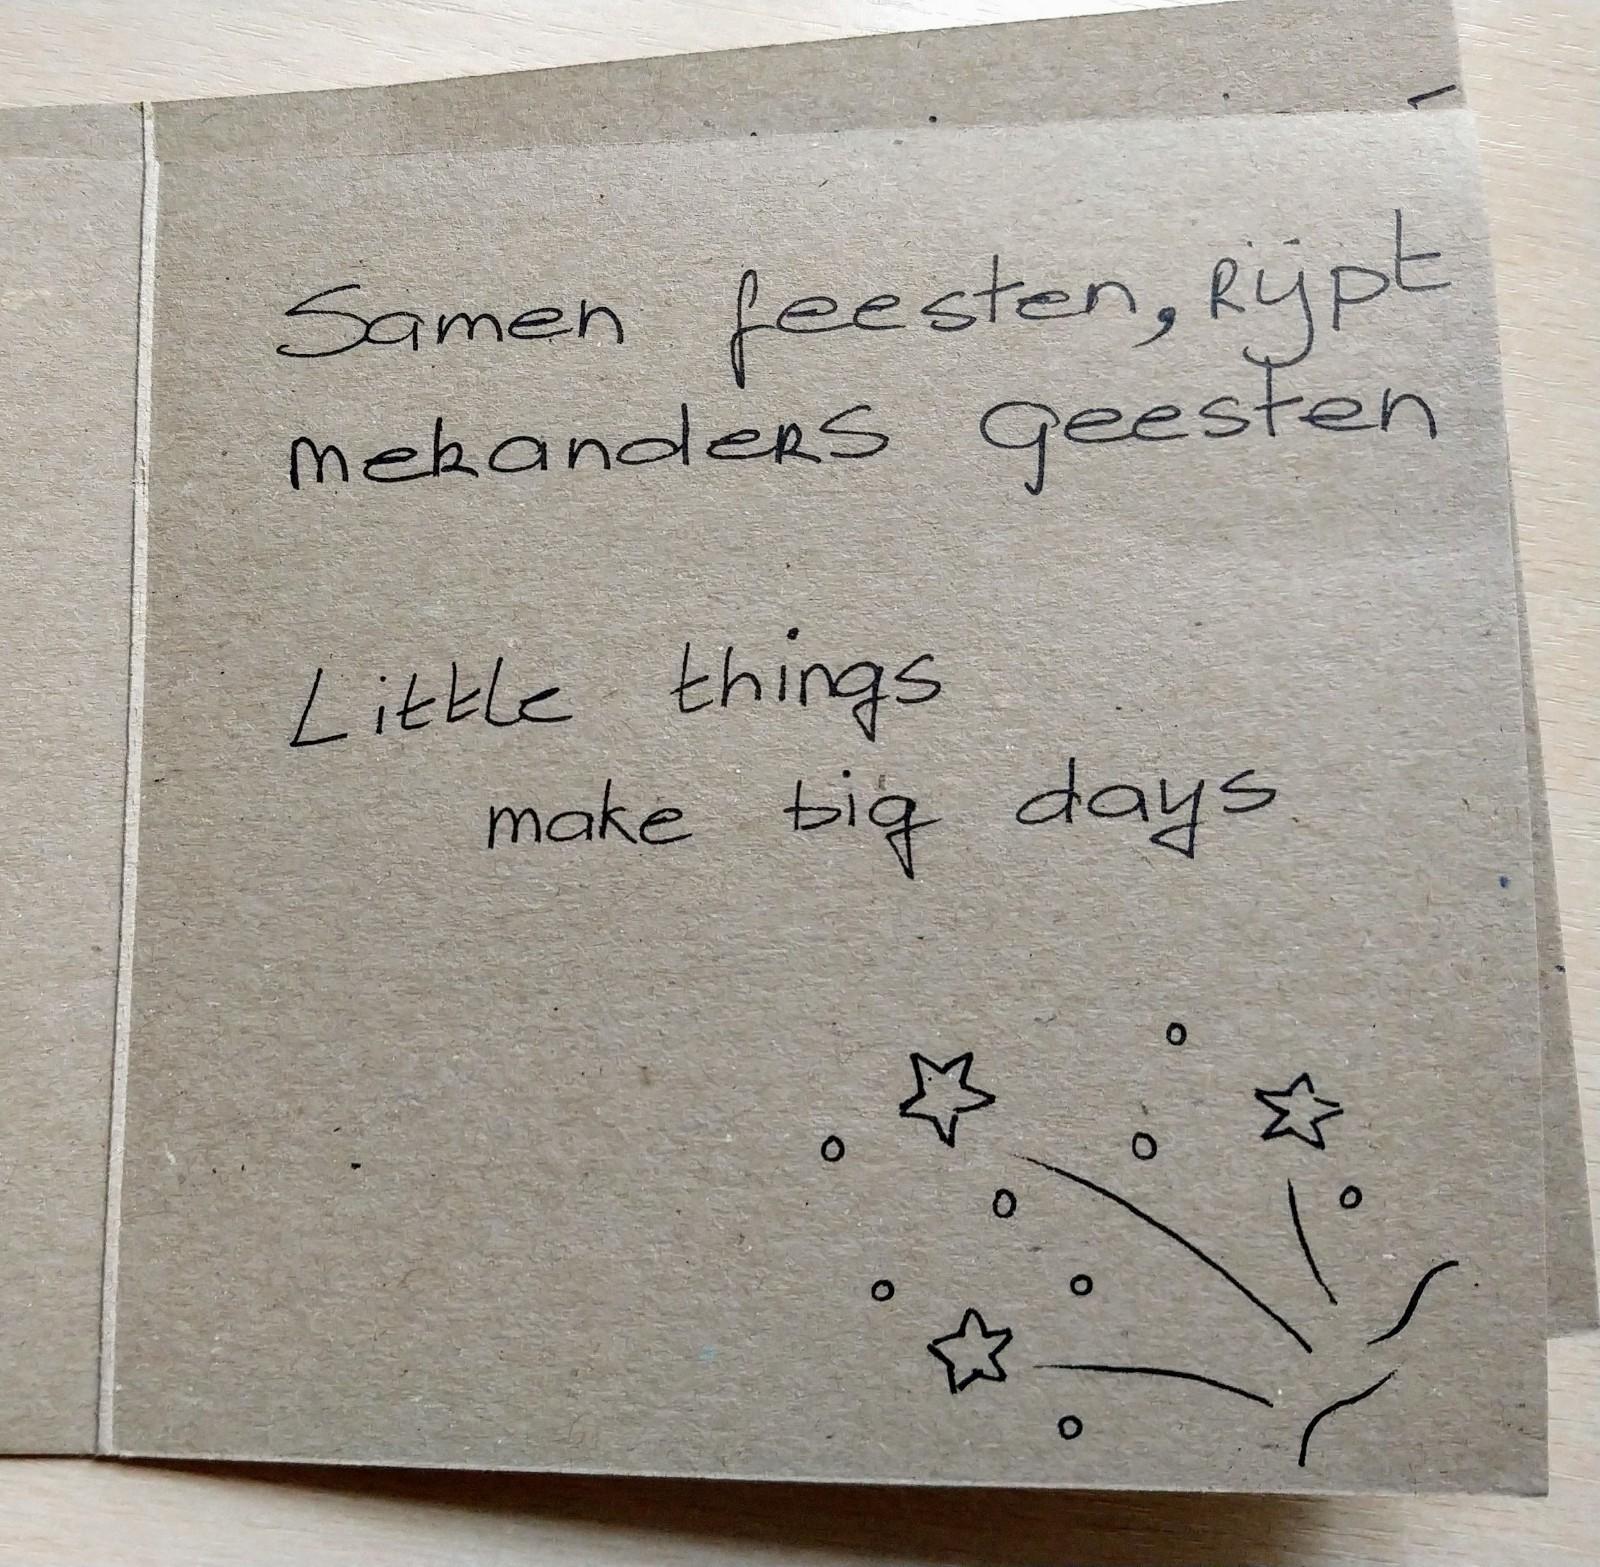 Samen feesten, Rijpt
mekanders geesten
Little things
make big days